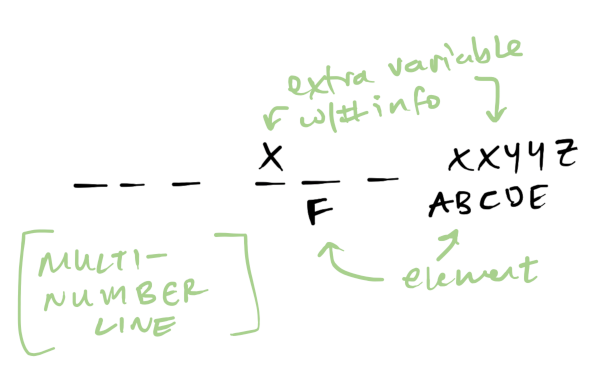 extra variable
w/# info
X
XXYYZ
— — — — — —
F
ABCDE
element
[MULTI-
NUMBER
LINE]